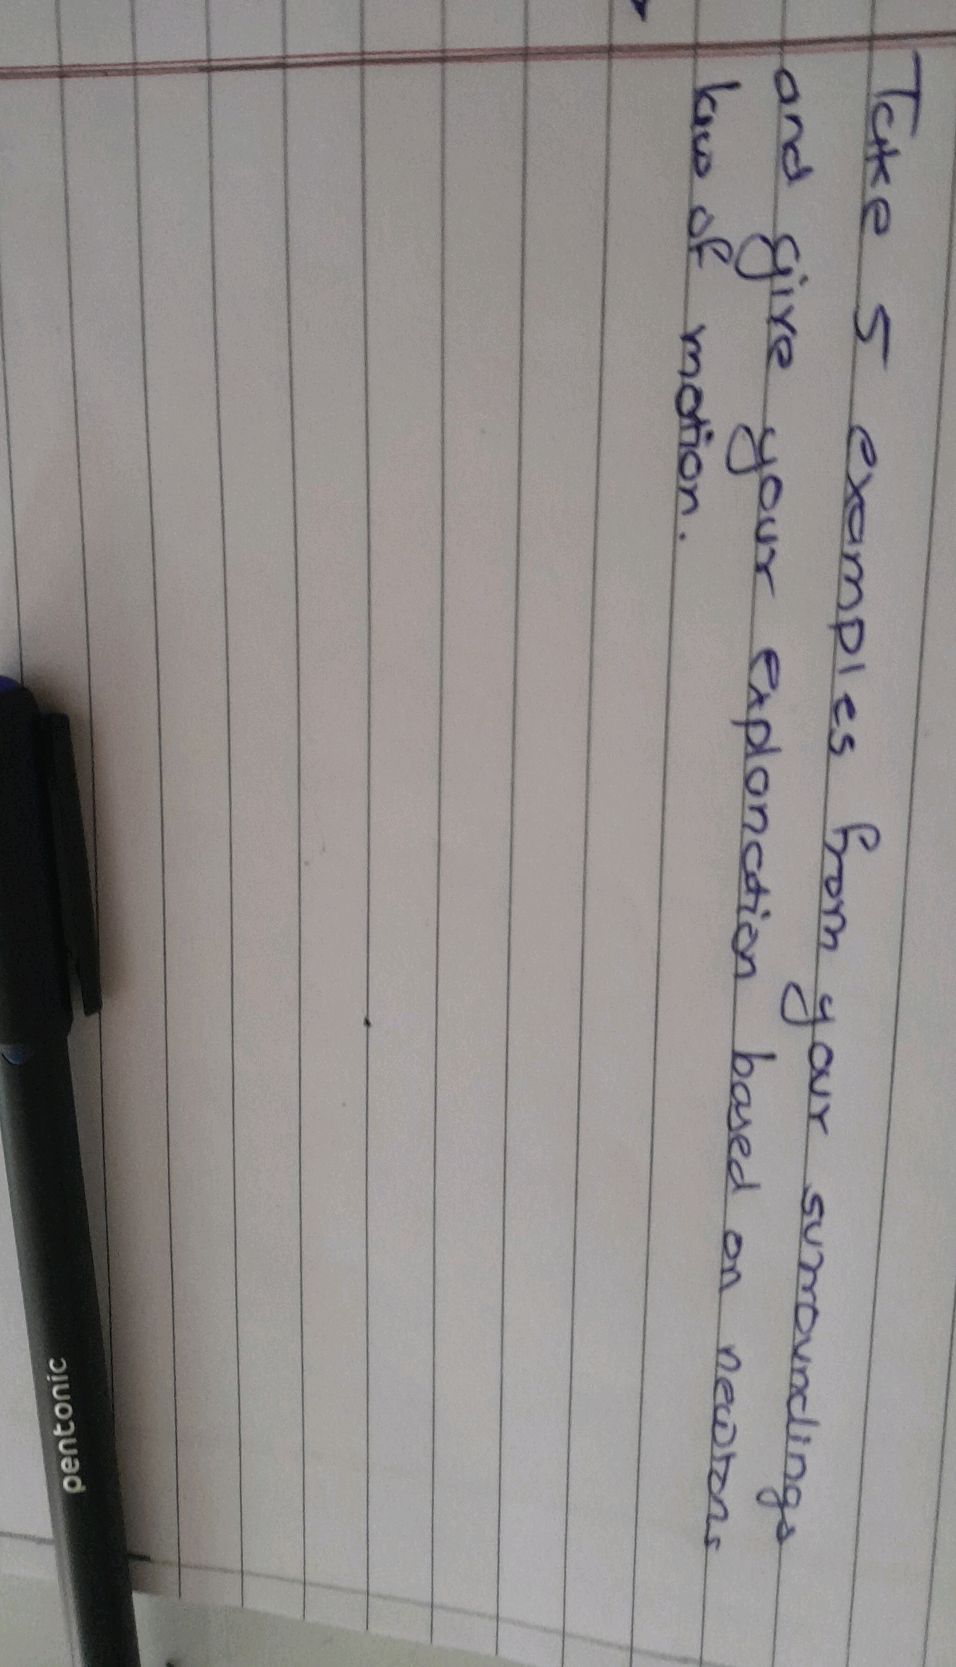 Take 5 examples from your surroundings
and give your explonation based on newtons
law of motion.
pentonic